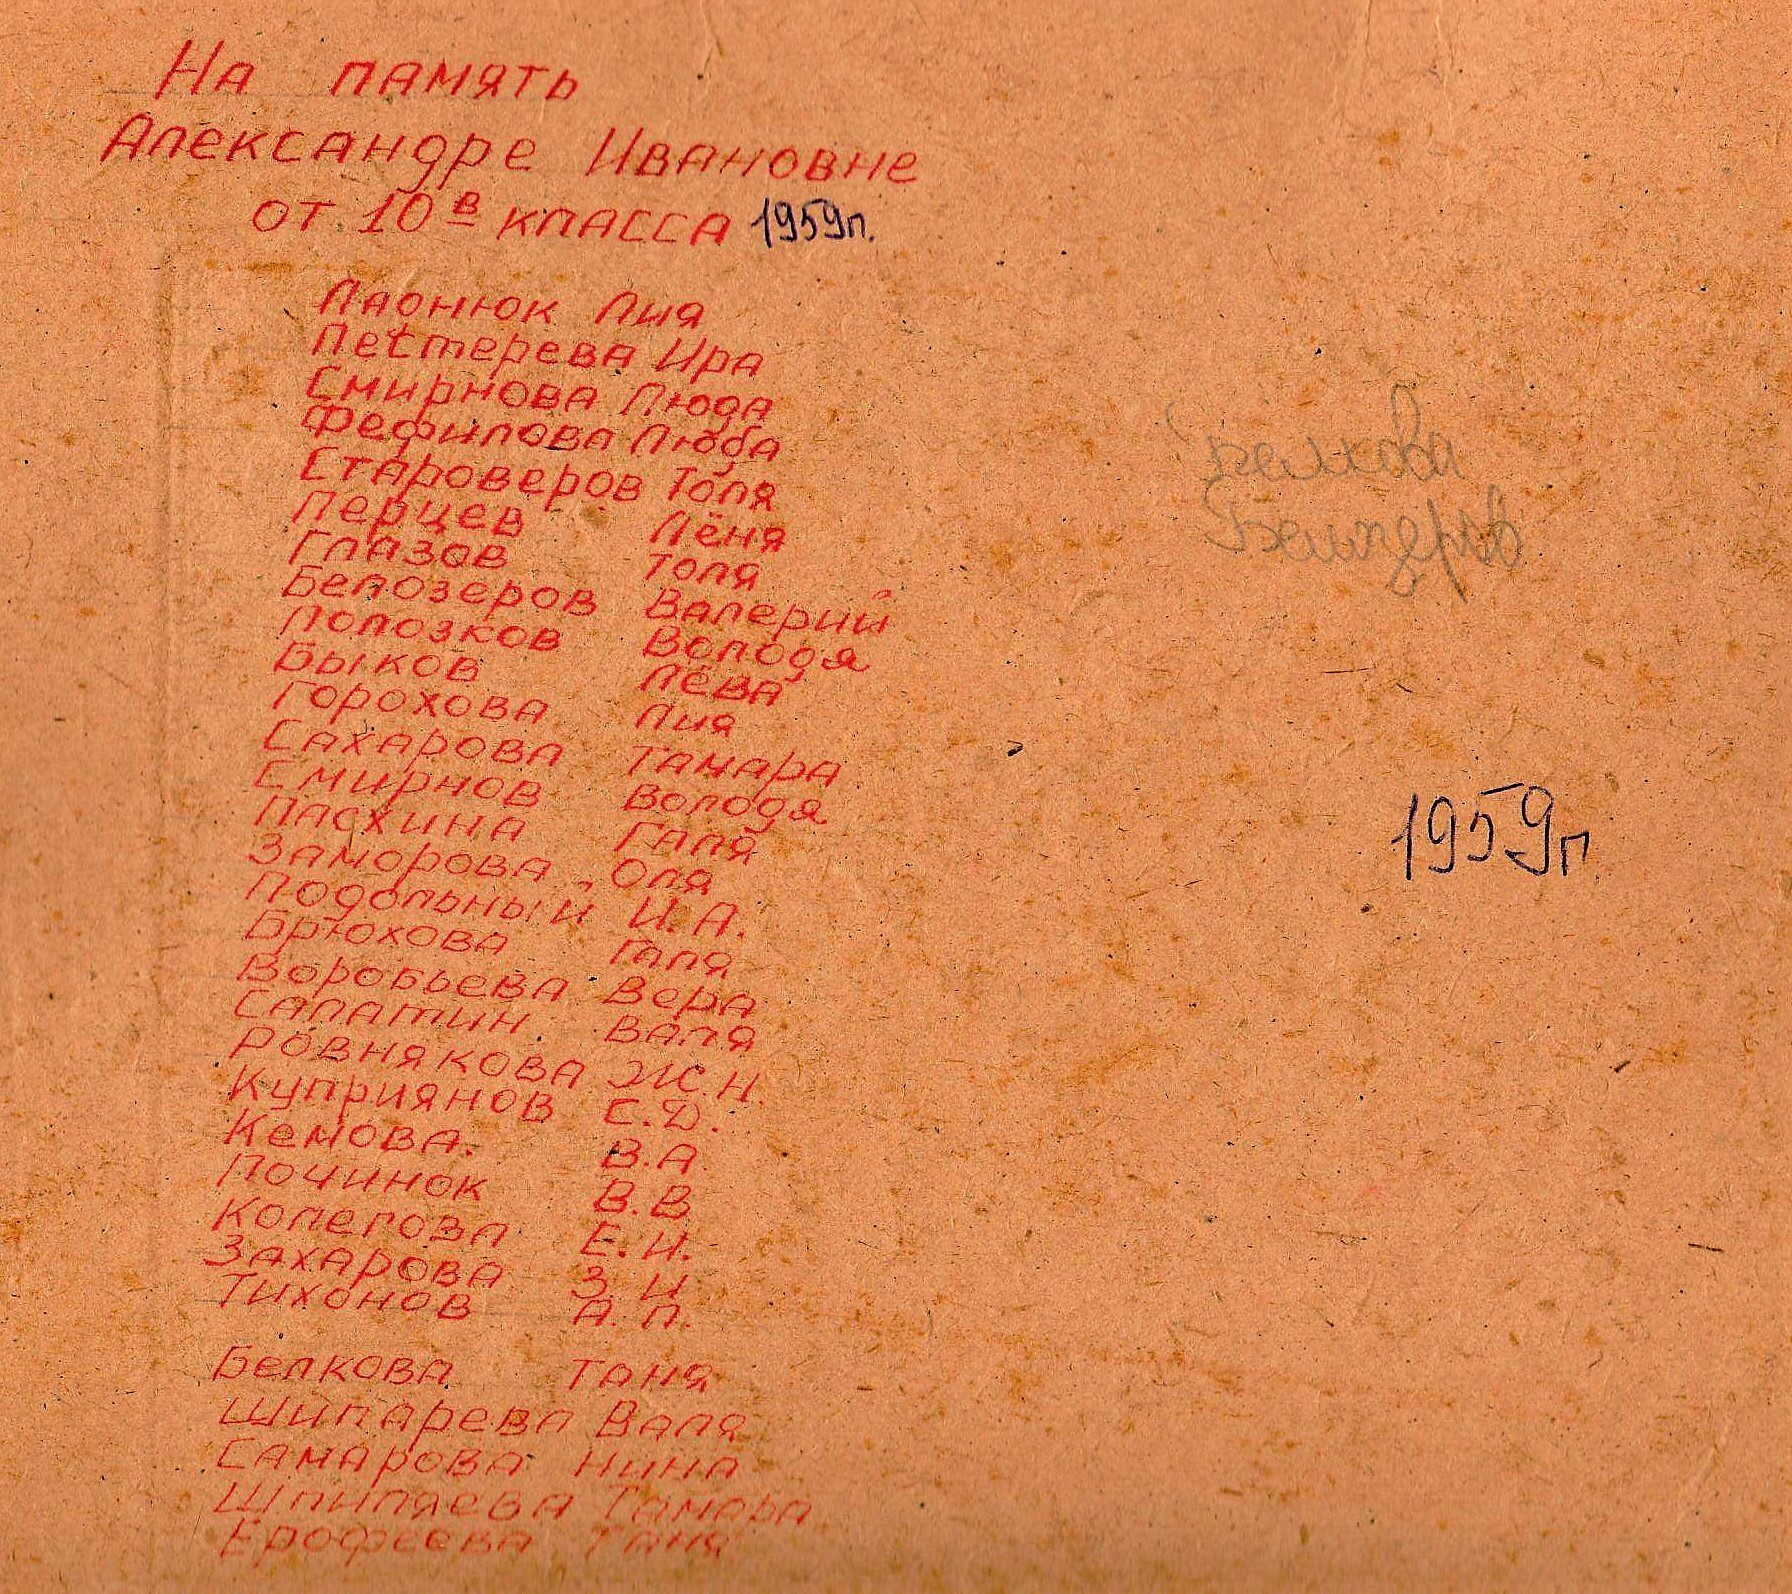 На память
Александре Ивановне
от 10 в класса 1959г.
Лаонюк Лия
Пестерева Ира
Смирнова Люда
Фефилова Люба
Староверов Толя
Перцев Лёня
Глазов Толя
Белозеров Валерий
Полозков Володя
Быков Лёва
Горохова Лия
Сахарова Тамара
Смирнов Володя
Пасхина Галя
Заморова Оля
Подольный И.А.
Брюхова Галя
Воробьева Вера
Салатин Валя
Ровнякова Ж.Н.
Куприянов С.Д.
Кемова В.А.
Починок В.В
Колегова Е.И.
Захарова З И
Тихонов А.П.
Белкова Таня
Шипарева Валя
Самарова Нина
Шпиляева Тамара
Ерофеева Таня
Белкова
1959г